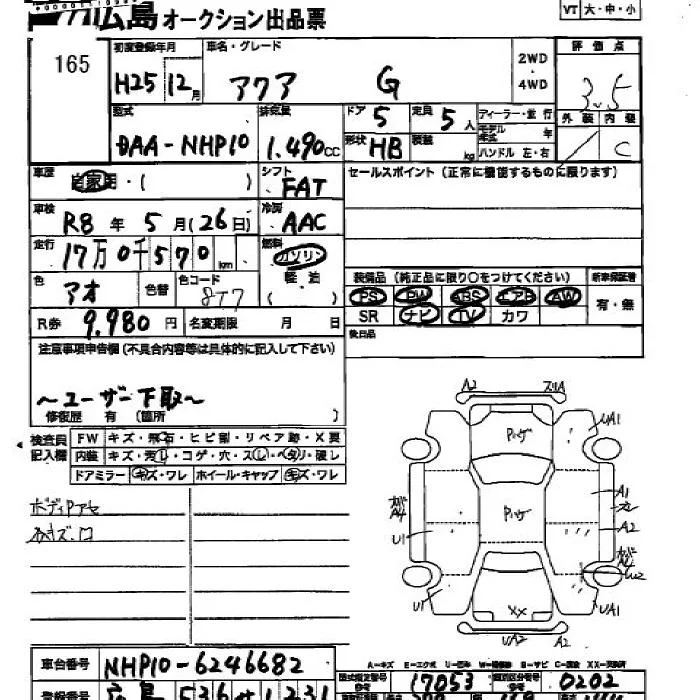 広島 オークション出品票
VT 大・中・小
165
初度登録年月 車名・グレード
H25 12月 アクア G
2WD
・
4WD
評価点
3.5
外装 内装
C
型式 排気量
DAA-NHP10 1.490cc
ドア 5 定員 5人
形状 HB 装備 kg
ディーラー・並行
モデル 年
ハンドル 左・右
車歴 自家用・( )
シフト FAT
セールスポイント (正常に機能するものに限ります)
車検 R8年 5月(26日)
冷房 AAC
走行 17万0千570km
燃料 ガソリン
軽・油
( )
色 アオ 色替 色コード 8T7
装備品 (純正品に限り○をつけてください) 新車保証書
PS PW ABS エアB AW 有・無
SR ナビ TV カワ
R券 9.980円 名変期限 月 日
後日品
注意事項申告欄(不具合内容等は具体的に記入して下さい)
~ユーザー下取~
修復歴 有 (箇所 )
検査員 FW キズ・飛石・ヒビ割・リペア跡・X要
記入欄 内装 キズ・汚し・コゲ・穴・スレ・ヘタリ・破レ
ドアミラー キズ・ワレ ホイール・キャップ キズ・ワレ
ボディアセ
A2 スリA
UA1
Pハゲ
A1
A4
Pハゲ
A2
U1
U1
XX
UA1
UA2 A2
A-キズ E-エクボ U-凹み W-補修跡 S-サビ C-腐食 XX-交換済
車台番号 NHP10-6246682
型式指定番号 17053 類別区分番号 0202
登録番号 広島 536 せ 1231